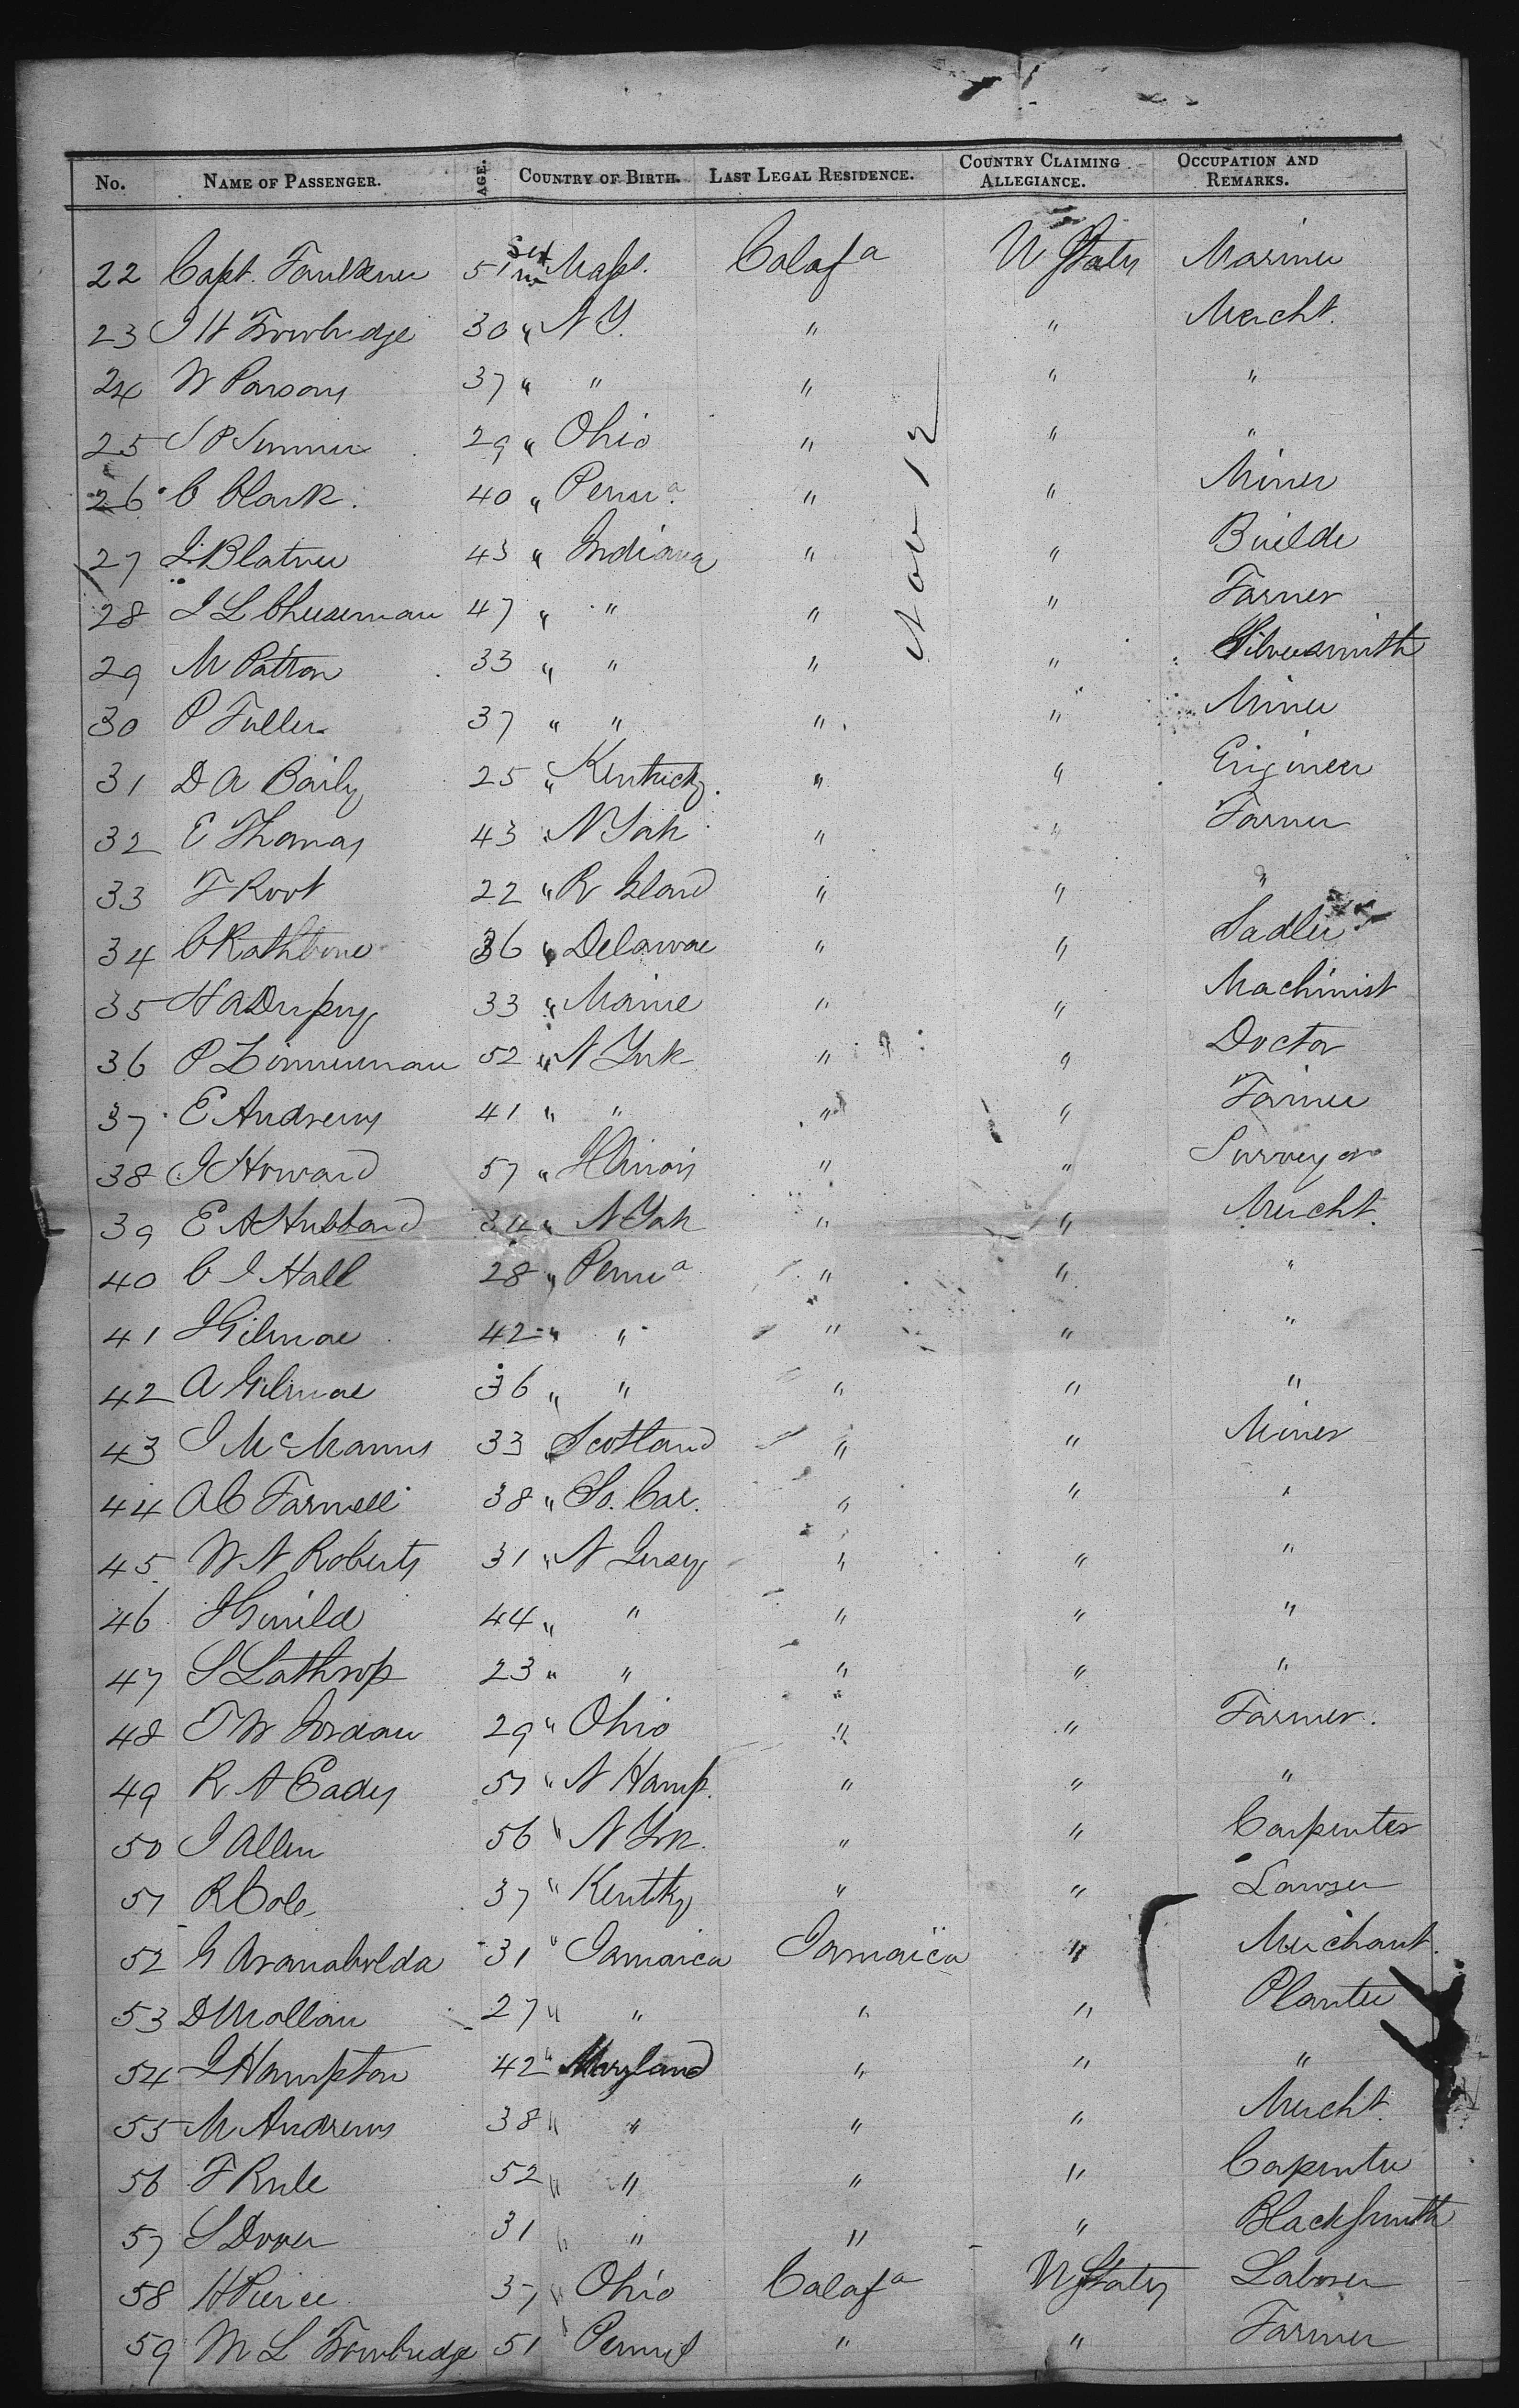 No. NAME OF PASSENGER. AGE. COUNTRY OF BIRTH. LAST LEGAL RESIDENCE. COUNTRY CLAIMING ALLEGIANCE. OCCUPATION AND REMARKS.
Sex
22 Capt. Faulkner 51 m Mass. Calafa U States Mariner
23 J H Trowbridge 30 " N Y. " " Mercht.
24 W Parsons 37 " " " " "
25 S P Sumner 29 " Ohio " " "
26 C Clark. 40 " Penna " " Miner
27 J. Blatner 43 " Indiana " " Builder
28 J L Cheeseman 47 " " " " Farmer
29 M Patton 33 " " " " Silversmith
30 P Fuller 37 " " " " Miner
31 D A Baily 25 " Kentucky. " " Engineer
32 E Thomas 43 " N York " " Farmer
33 F Root 22 " R Island " " "
34 C Rathbone 36 " Delaware " " Sadler
35 H A Dupuy 33 " Maine " " Machinist
36 P Zimmerman 52 " N York " " Doctor
37 E Andrews 41 " " " " Farmer
38 J Howard 57 " Illinois " " Surveyor
39 E A Hubbard 34 " N York " " Mercht.
40 C J Hall 28 " Penna " " "
41 J Gilmore 42 " " " " "
42 A Gilmore 36 " " " " "
43 J McManus 33 " Scotland " " Miner
44 A C Farwell 38 " So. Car. " " "
45 W N Roberts 31 " N Jersey " " "
46 J Guild 44 " " " " "
47 S Lathrop 23 " " " " "
48 T W Jordan 29 " Ohio " " Farmer.
49 R A Eady 51 " N Hamp. " " "
50 J Allen 56 " N York. " " Carpenter
51 R Cole 37 " Kentky " " Lawyer
52 G 31 " Jamaica Jamaica " Merchant.
53 D Mollan 27 " " " " Planter
54 J Hampton 42 " Maryland " " "
55 M Andrews 38 " " " " Mercht.
56 F Rule 52 " " " " Carpenter
57 S Dover 31 " " " " Blacksmith
58 H Pierce 37 " Ohio Calafa U States Laborer
59 M L Trowbridge 51 " " " Farmer
Nov 12